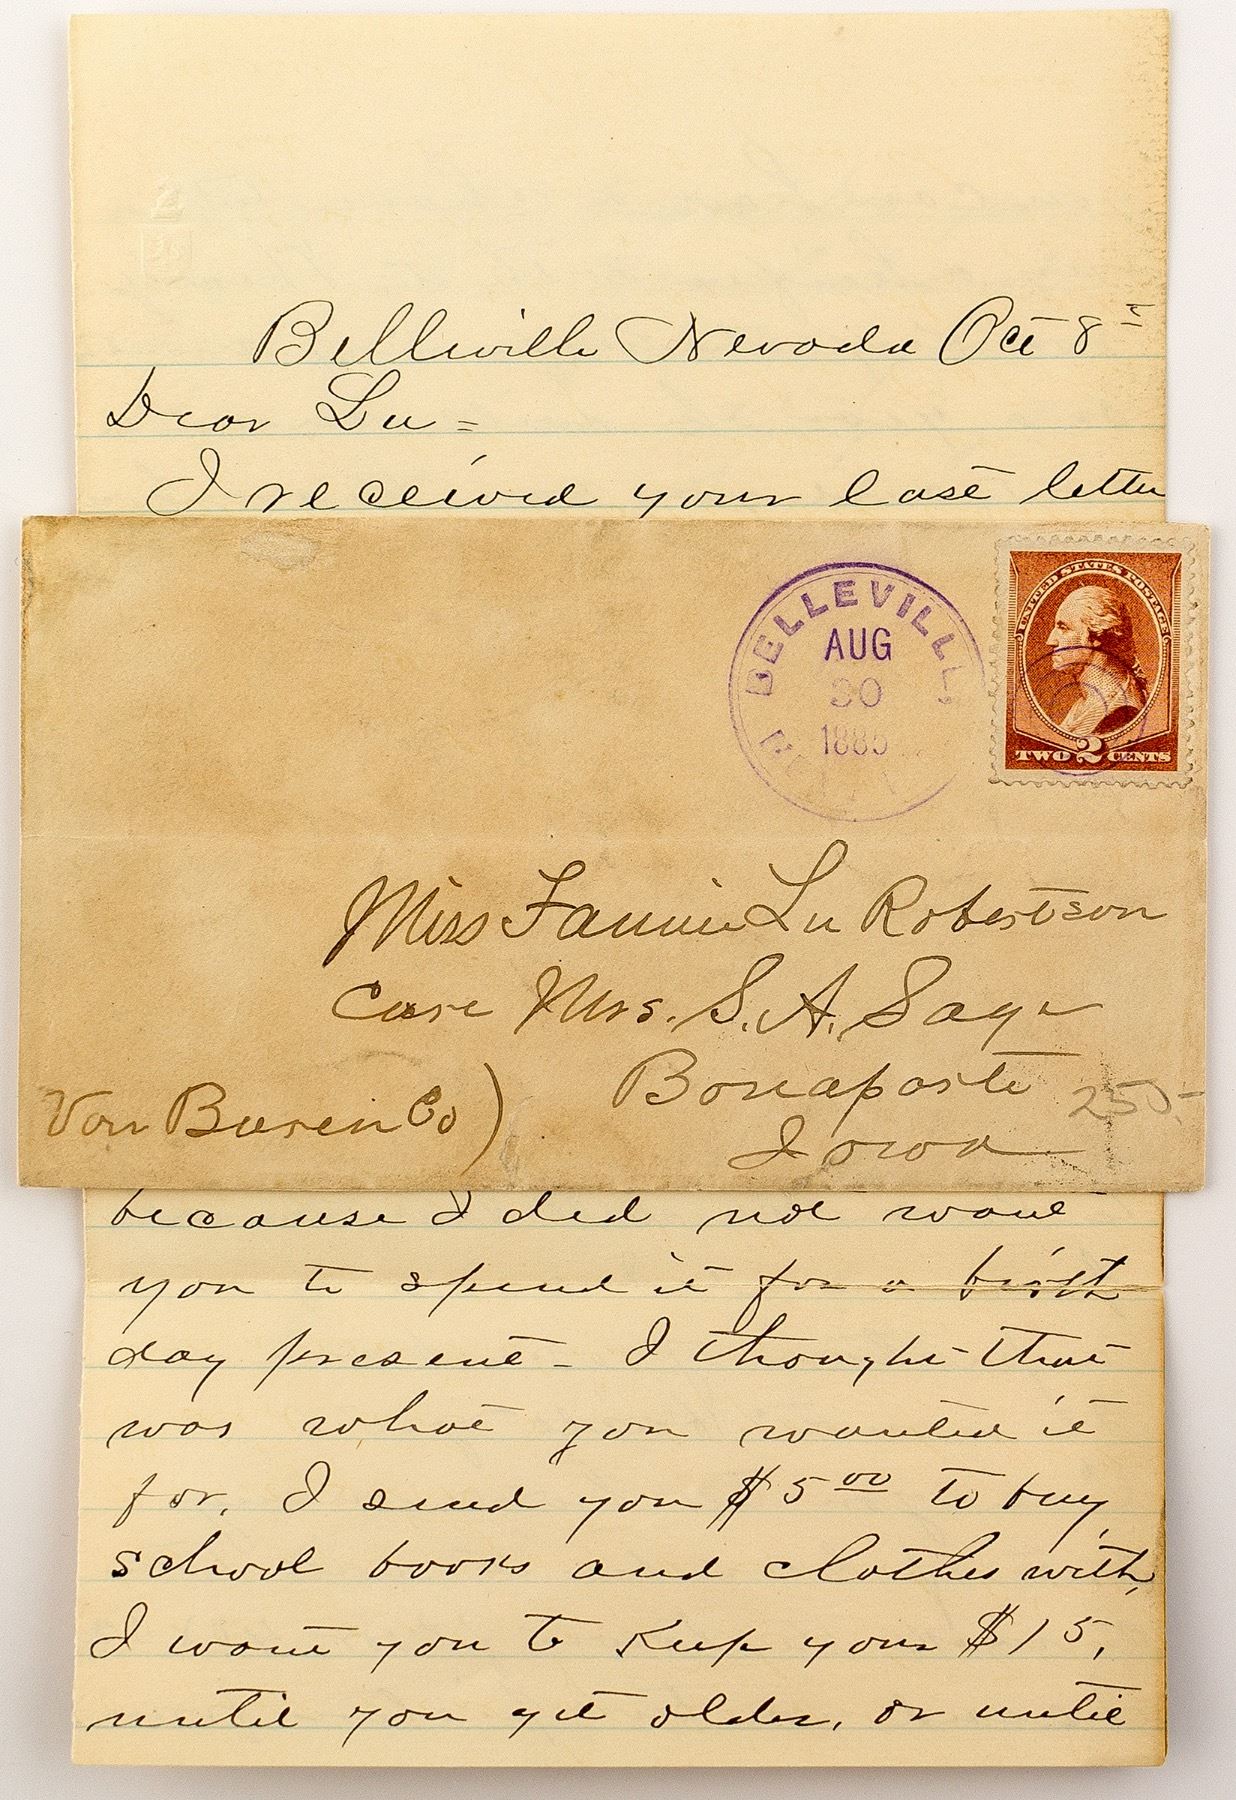 Belleville Nevada Oct 8th
Dear Lu =
I received your last letter
BELLEVILLE
AUG
30
1885
UNITED STATES POSTAGE
TWO 2 CENTS
Miss Fannie Lu Robertson
Care Mrs. S. A. Sage
Bonaparte
Van Buren Co)
Iowa
250.-
because I did not want
you to spend it for a birth
day present - I thought that
was what you wanted it
for, I send you $5 00 to buy
school books and clothes with,
I want you to keep your $15,
until you get older, or until